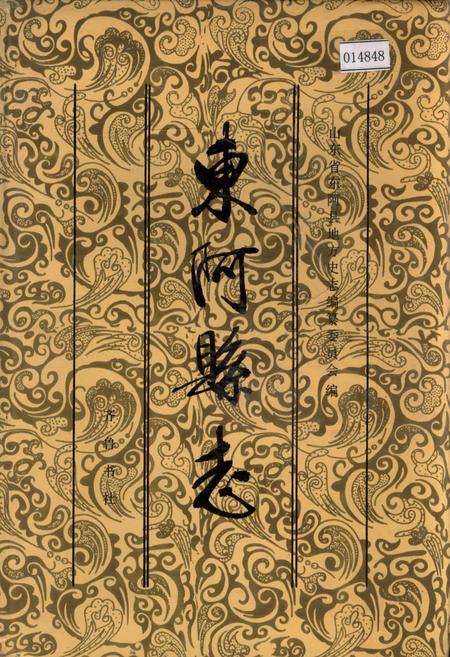 014848
山东省东阿县地方史志编纂委员会编
東阿縣志
齐鲁书社